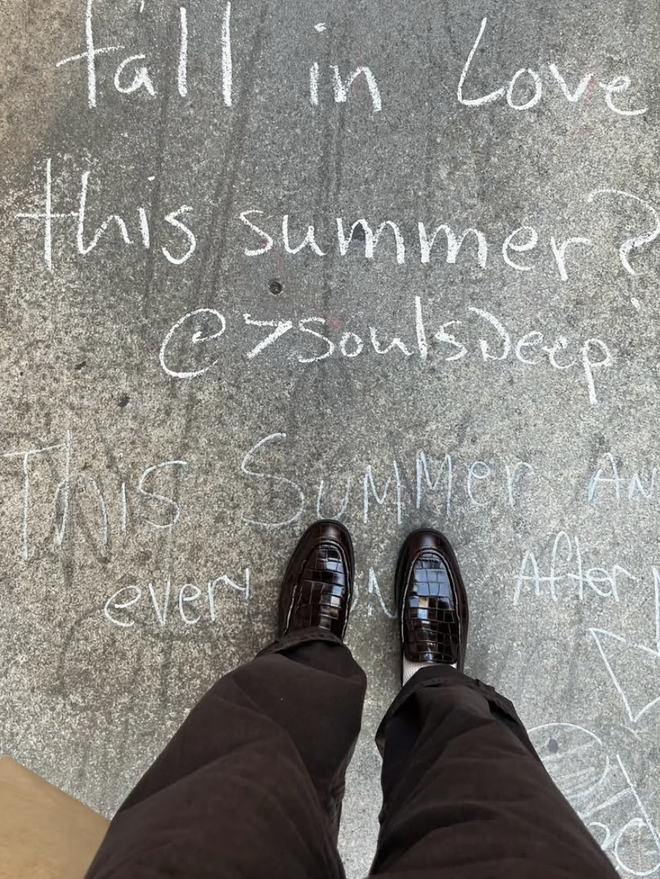 fall in Love
this summer?
@7soulsDeep
This Summer AN
every After